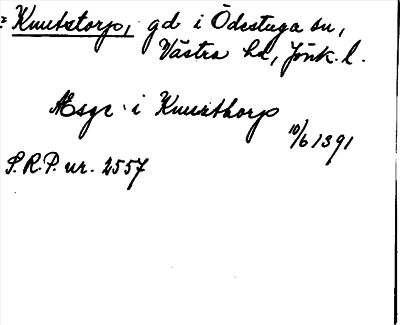 Knutstorp, gd i Ödestuga sn,
Västra hd, Jönk. l.
Æsge i Knwtthorp
10/6 1391
S.R.P. nr. 2557